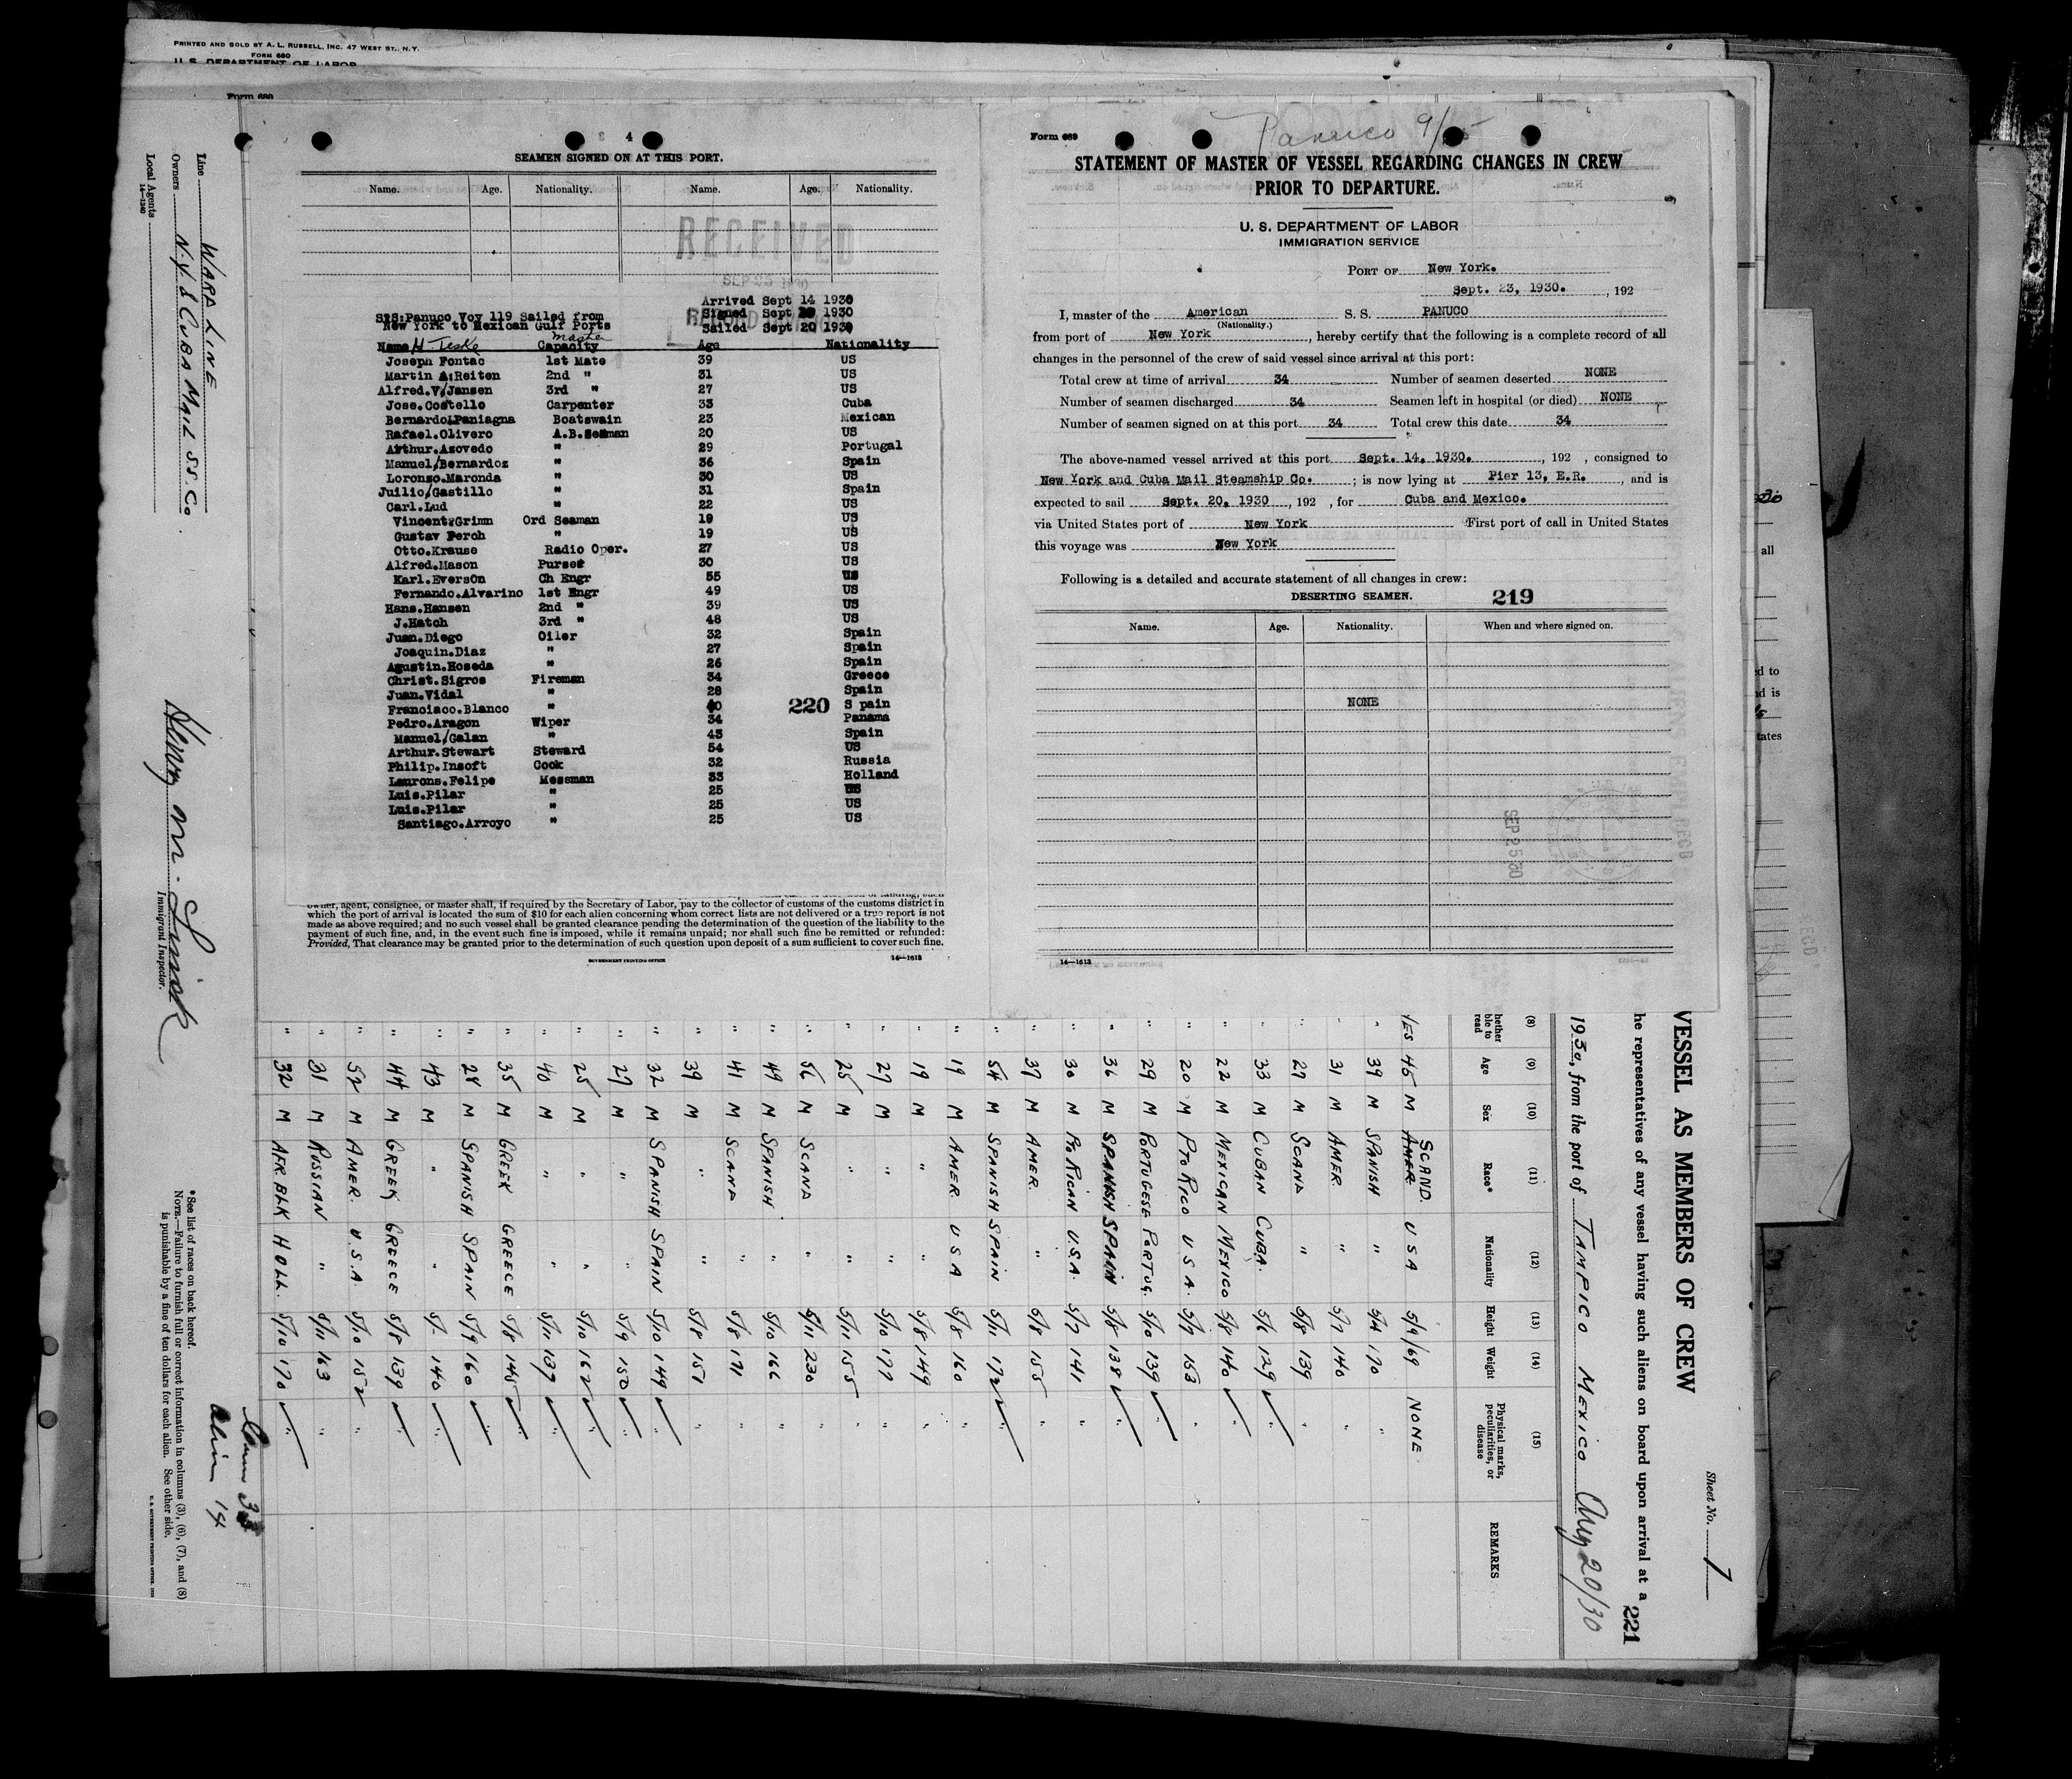 PRINTED AND SOLD BY A. L. RUSSELL, INC. 47 WEST ST., N.Y.
FORM 680
U. S. DEPARTMENT OF LABOR
Form 680
4
SEAMEN SIGNED ON AT THIS PORT.
Name. Age. Nationality. Name. Age. Nationality.
RECEIVED
SEP 23 1930
Arrived Sept 14 1930
Signed Sept 1930
Sailed Sept 20 1930
S/S:Panuco Voy 119 Sailed from
New York to Mexican Gulf Ports
Name H Teske Capacity master Age Nationality
Joseph Fontac 1st Mate 39 US
Martin A:Reiten 2nd " 31 US
Alfred.V/Jansen 3rd " 27 US
Jose.Costello Carpenter 33 Cuba
Bernardo.Paniagna Boatswain 23 Mexican
Rafael.Olivero A.B.Seaman 20 US
Arthur.Azovedo " 29 Portugal
Manuel/Bernardoz " 36 Spain
Loronzo.Maronda " 30 US
Juilio/Castillo " 31 Spain
Carl.Lud " 22 US
Vincent.Grimn Ord Seaman 19 US
Gustav Ferch " 19 US
Otto.Krause Radio Oper. 27 US
Alfred.Mason Purser 30 US
Karl.EversOn Ch Engr 55 US
Fernando.Alvarino 1st Engr 49 US
Hans.Hansen 2nd " 39 US
J.Hatch 3rd " 48 US
Juan.Diego Oiler 32 Spain
Joaquin.Diaz " 27 Spain
Agustin.Hoseda " 26 Spain
Christ.Sigros Fireman 34 Greece
Juan.Vidal " 28 Spain
Franciaco.Blanco " 40 220 S pain
Pedro.Aragon Wiper 34 Panama
Manuel/Galan " 43 Spain
Arthur.Stewart Steward 54 US
Philip.Insoft Cook 32 Russia
Laurons.Felipe Messman 33 Holland
Luis.Pilar " 25 US
Luis.Pilar " 25 US
Santiago.Arroyo " 25 US
owner, agent, consignee, or master shall, if required by the Secretary of Labor, pay to the collector of customs of the customs district in
which the port of arrival is located the sum of $10 for each alien concerning whom correct lists are not delivered or a true report is not
made as above required; and no such vessel shall be granted clearance pending the determination of the question of the liability to the
payment of such fine, and, in the event such fine is imposed, while it remains unpaid; nor shall such fine be remitted or refunded:
Provided, That clearance may be granted prior to the determination of such question upon deposit of a sum sufficient to cover such fine.
GOVERNMENT PRINTING OFFICE 14—1613
Form 689
Panuco 9/
STATEMENT OF MASTER OF VESSEL REGARDING CHANGES IN CREW
PRIOR TO DEPARTURE.
U. S. DEPARTMENT OF LABOR
IMMIGRATION SERVICE
PORT OF New York.
Sept. 23, 1930. , 192
I, master of the American S. S. PANUCO
(Nationality.)
from port of New York , hereby certify that the following is a complete record of all
changes in the personnel of the crew of said vessel since arrival at this port:
Total crew at time of arrival 34 Number of seamen deserted NONE
Number of seamen discharged 34 Seamen left in hospital (or died) NONE
Number of seamen signed on at this port 34 Total crew this date 34
The above-named vessel arrived at this port Sept. 14, 1930. , 192 , consigned to
New York and Cuba Mail Steamship Co. ; is now lying at Pier 13, E.R. , and is
expected to sail Sept. 20, 1930 , 192 , for Cuba and Mexico.
via United States port of New York First port of call in United States
this voyage was New York
Following is a detailed and accurate statement of all changes in crew:
DESERTING SEAMEN. 219
Name. Age. Nationality. When and where signed on.
NONE
SEP 25 30
14—1613
Sheet No. 1
VESSEL AS MEMBERS OF CREW
221
he representatives of any vessel having such aliens on board upon arrival at a
1930, from the port of TAMPICO MEXICO Aug 20/30
(8) (9) (10) (11) (12) (13) (14) (15)
hether ble to read Age Sex Race* Nationality Height Weight Physical marks, peculiarities, or disease REMARKS
YES 45 M AMER SCAND. USA 5/9/69 NONE
" 39 M SPANISH " 5/4 170 "
" 31 M AMER. " 5/7 140 "
" 27 M SCAND " 5/8 139 "
" 33 M CUBAN CUBA. 5/6 129
" 22 M MEXICAN MEXICO 5/8 140
" 20 M PTO RICO USA. 5/7 153 "
" 29 M PORTUGESE PORTUG. 5/10 139
" 36 M SPANISH SPAIN 5/8 138
" 30 M PTO RICAN U.S.A. 5/7 141 "
" 37 M AMER. " 5/8 155 "
" 54 M SPANISH SPAIN 5/11 172 "
" 19 M AMER USA 5/8 160 "
" 19 M " " 5/8 149 "
" 27 M " " 5/10 177 "
" 25 M " " 5/11 155 "
" 56 M SCAND " 5/11 230 "
" 49 M SPANISH " 5/10 166 "
" 41 M SCAND " 5/8 171 "
" 39 M " " 5/8 151 "
" 32 M SPANISH SPAIN 5/10 149 "
" 27 M " " 5/9 150 "
" 25 M " " 5/10 162 "
" 40 M " " 5/11 137 "
" 35 M GREEK GREECE 5/8 145 "
" 28 M SPANISH SPAIN 5/9 160 "
" 43 M " " 5/- 140 "
" 44 M GREEK GREECE 5/8 139 "
" 52 M AMER. U.S.A. 5/10 152 "
" 31 M RUSSIAN " 5/11 163 "
" 32 M AFR.BLK HOLL. 5/10 170 "
Line WARD LINE
Owners N.Y. & CUBA MAIL SS. Co.
Local Agents
14—1240
Immigrant Inspector.
*See list of races on back hereof.
NOTE.—Failure to furnish full or correct information in columns (3), (6), (7), and (8)
is punishable by a fine of ten dollars for each alien. See other side.
Alien 14
all
ed to
nd is
tates